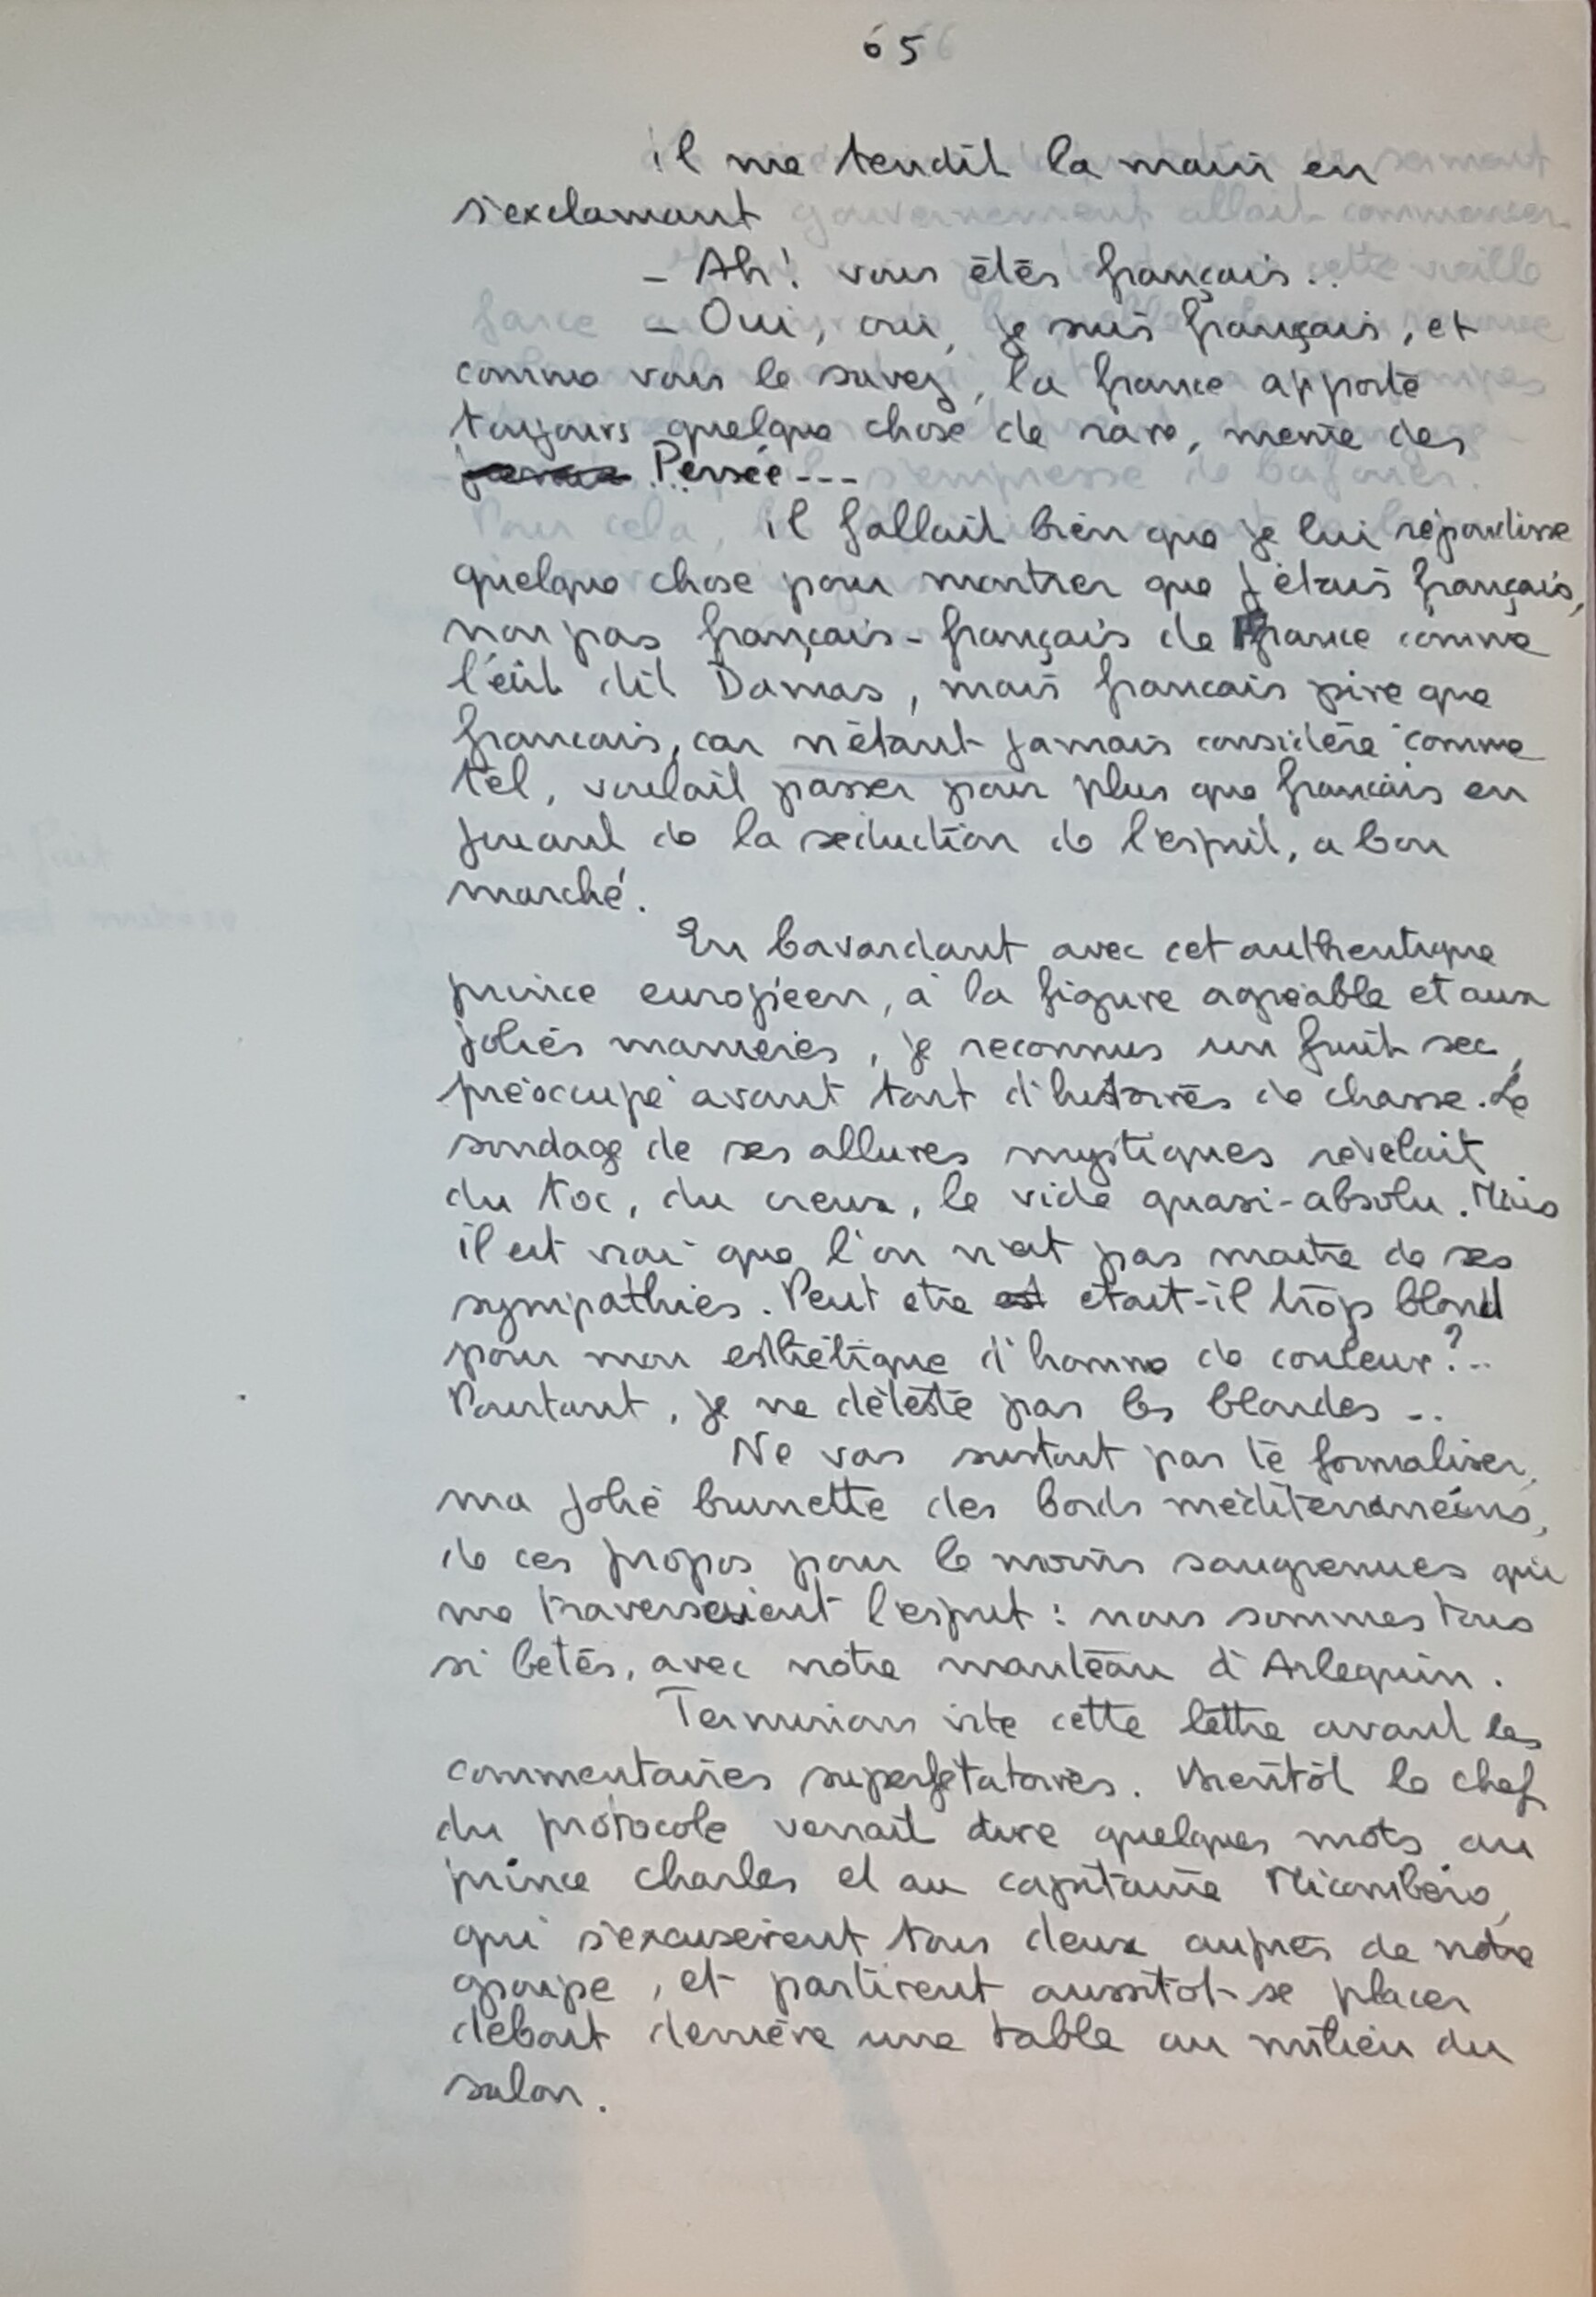 65
il me tendit la main en
s'exclamant
- Ah! vous êtes français..
- Oui, oui, je suis français, et
comme vous le savez, la france apporte
toujours quelque chose de rare, même des
Persée ---
il fallait bien que je lui répondisse
quelque chose pour montrer que j'étais français,
non pas français-français de France comme
l'eût dit Damas, mais francais pire que
francais, car n'étant jamais considéré comme
tel, voulait passer pour plus que francais en
jouant de la seduction de l'esprit, a bon
marché.
En bavardant avec cet authentique
prince européen, à la figure agréable et aux
jolies manieres, je reconnus un fruit sec,
préoccupé avant tout d'histoires de chasse. Le
sondage de ses allures mystiques révélait
du toc, du creux, le vide quasi-absolu. Mais
il est vrai que l'on n'est pas maitre de ses
sympathies. Peut etre est etait-il trop blond
pour mon esthétique d'homme de couleur?..
Pourtant, je ne déteste pas les blondes ..
Ne vas surtout pas te formaliser,
ma jolie brunette des bords méditerranéens,
de ces propos pour le moins saugrenues qui
me traversaient l'esprit : nous sommes tous
si betes, avec notre manteau d'Arlequin.
Terminons vite cette lettre avant les
commentaires superfetatoires. Bientôt le chef
du protocole venait dire quelques mots au
prince Charles et au capitaine Micombero,
qui s'excuserent tous deux auprès de notre
groupe, et partirent aussitot se placer
debout derrière une table au milieu du
salon.